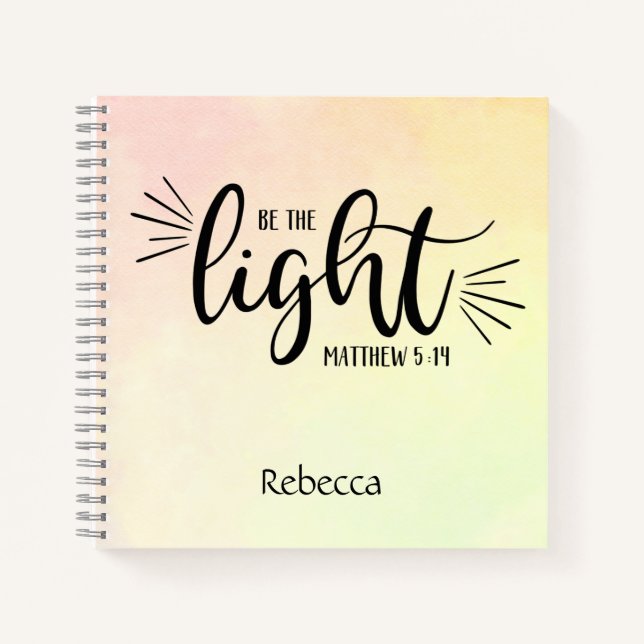 BE THE
light
MATTHEW 5:14
Rebecca